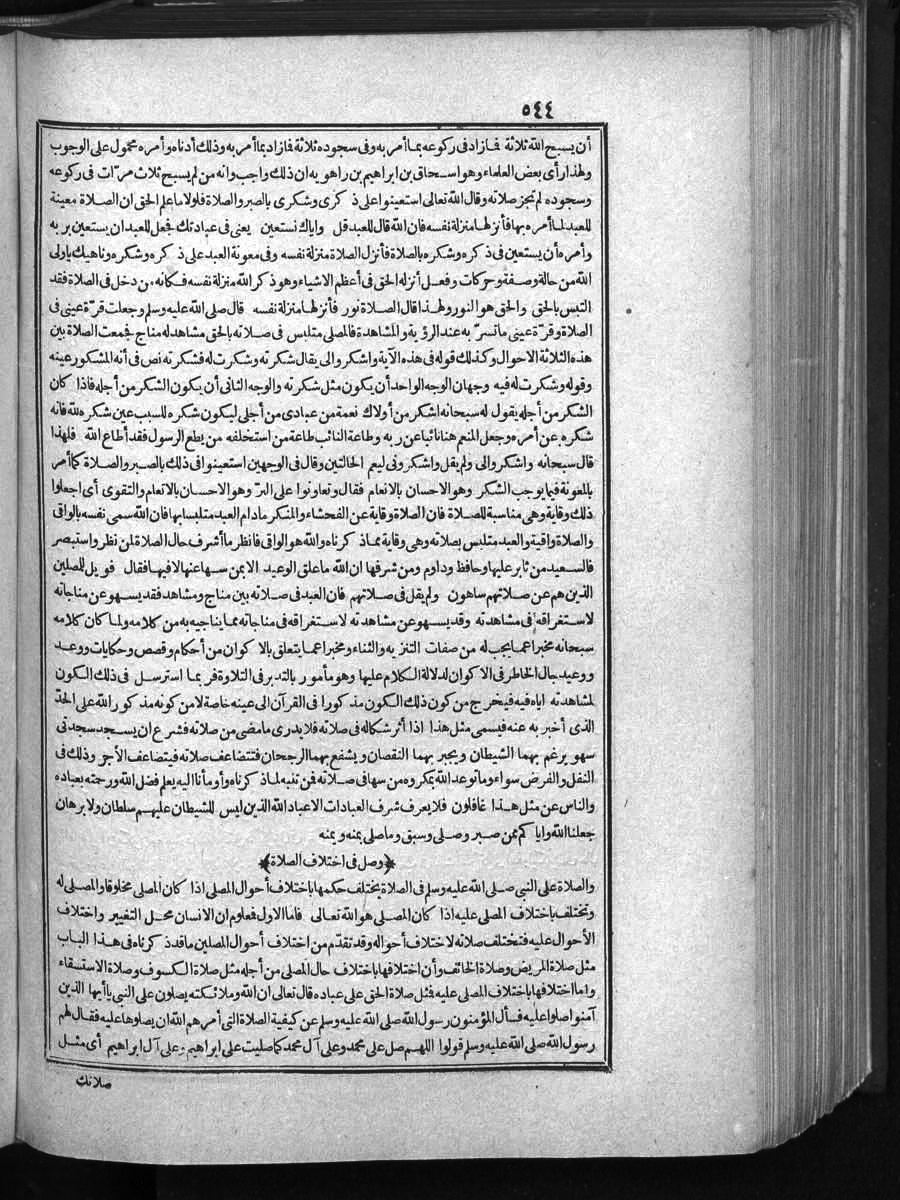 ٥٤٤
أن يسبح الله ثلاثة فازاد في ركوعه بما أمر به وفى سجوده ثلاثة فازاد بما أمر به وذلك أدناه وأمره محمول على الوجوب
ولهذا رأى بعض العلماء وهو اسحاق بن ابراهيم بن راهويه ان ذلك واجب وانه من لم يسبح ثلاث مرّات فى ركوعه
وسجوده لم تجز صلاته وقال الله تعالى استعينوا على ذكرى وشكرى بالصبر والصلاة فلولا ما علم الحق ان الصلاة معينة
للعبد لما أمره بها فأنزلها منزلة نفسه فان الله قال للعبد قل واياك نستعين يعنى فى عبادتك فجعل للعبد ان يستعين بربه
وأمره أن يستعين فى ذكره وشكره بالصلاة فأنزل الصلاة منزلة نفسه وفى معونة العبد على ذكره وشكره وناهيك ياولى
الله من حالة وصفة وحركات وفعل أنزله الحق فى أعظم الاشياء وهو ذكر الله منزلة نفسه فكأنه من دخل فى الصلاة فقد
التبس بالحق والحق هو النور ولهذا قال الصلاة نور فأنزلها منزلة نفسه قال صلى الله عليه وسلم وجعلت قرّة عينى فى
الصلاة وقرّة عينى ماتسرّ به عند الرؤية والمشاهدة فالمصلى متلبس فى صلاته بالحق مشاهد له مناج فجمعت الصلاة بين
هذه الثلاثة الاحوال وكذلك قوله فى هذه الآية واشكروالى يقال شكرته وشكرت له فشكرته نص فى أنه المشكور عينه
وقوله وشكرت له فيه وجهان الوجه الواحد أن يكون مثل شكرته والوجه الثانى أن يكون الشكر من أجله فاذا كان
الشكر من أجله يقول له سبحانه اشكر من أولاك نعمة من عبادى من أجلى ليكون شكره للسبب عين شكره لله فانه
شكره عن أمره وجعل المنعم هنا نائبا عن ربه وطاعة النائب طاعة من استخلفه من يطع الرسول فقد أطاع الله فلهذا
قال سبحانه واشكروالى ولم يقل واشكرونى ليعم الحالتين وقال فى الوجهين استعينوا فى ذلك بالصبر والصلاة كما أمر
بالمعونة فيما يوجب الشكر وهو الاحسان بالانعام فقال وتعاونوا على البرّ وهو الاحسان بالانعام والتقوى أى اجعلوا
ذلك وقاية وهى مناسبة للصلاة فان الصلاة وقاية عن الفحشاء والمنكر مادام العبد متلبسا بها فان الله سمى نفسه بالواقى
والصلاة واقية والعبد متلبس بصلاته وهى وقاية مماذكرناه والله هو الواقى فانظر ما أشرف حال الصلاة لمن نظر واستبصر
فالسعيد من ثابر عليها وحافظ وداوم ومن شرفها ان الله ما علق الوعيد الا بمن سها عنها لا فيها فقال فويل للمصلين
الذين هم عن صلاتهم ساهون ولم يقل فى صلاتهم فان العبد فى صلاته بين مناج ومشاهد فقد يسهو عن مناجاته
لاستغراقه فى مشاهدته وقد يسهو عن مشاهدته لاستغراقه فى مناجاته مما يناجيه به من كلامه ولما كان كلامه
سبحانه مخبرا عما يجب له من صفات التنزيه والثناء ومخبرا عما يتعلق بالاكوان من أحكام وقصص وحكايات ووعد
ووعيد جال الخاطر فى الاكوان لدلالة الكلام عليها وهو مأمور بالتدبر فى التلاوة فربما استرسل فى ذلك الكون
لمشاهدته اياه فيه فيخرج من كون ذلك الكون مذكورا فى القرآن الى عينه خاصة لا من كونه مذكور الله على الحدّ
الذى أخبر به عنه فيسمى مثل هذا اذا أثر شكاله فى صلاته فلا يدرى مامضى من صلاته فشرع ان يسجد سجدتى
سهو يرغم بهما الشيطان ويجبر بهما النقصان ويشفع بهما الرجحان فتتضاعف صلاته فيتضاعف الأجر وذلك فى
النفل والفرض سواء وما توعد الله بمكروه من سها فى صلاته فمن تنبه لماذكرناه وأومأنا اليه يعلم فضل الله ورحمته بعباده
والناس عن مثل هذا غافلون فلا يعرف شرف العبادات الا عباد الله الذين ليس للشيطان عليهم سلطان ولا برهان
جعلنا الله واياكم ممن صبر وصلى وسبق وماصلى بمنه ويمنه
﴿وصل فى اختلاف الصلاة﴾
والصلاة على النبى صلى الله عليه وسلم فى الصلاة يختلف حكمها باختلاف أحوال المصلى اذا كان المصلى مخلوقا والمصلى له
وتختلف باختلاف المصلى عليه اذا كان المصلى هو الله تعالى فاما الاول فمعلوم ان الانسان محل التغيير واختلاف
الأحوال عليه فتختلف صلاته لاختلاف أحواله وقد تقدّم من اختلاف أحوال المصلين ماقد ذكرناه فى هذا الباب
مثل صلاة المريض وصلاة الخائف وأن اختلافها باختلاف حال المصلى من أجله مثل صلاة الكسوف وصلاة الاستسقاء
واما اختلافها باختلاف المصلى عليه فمثل صلاة الحق على عباده قال تعالى ان الله وملائكته يصلون على النبى ياأيها الذين
آمنوا صلوا عليه فسأل المؤمنون رسول الله صلى الله عليه وسلم عن كيفية الصلاة التى أمرهم الله ان يصلوها عليه فقال لهم
رسول الله صلى الله عليه وسلم قولوا اللهم صل على محمد وعلى آل محمد كما صليت على ابراهيم وعلى آل ابراهيم أى مثل
صلاتك